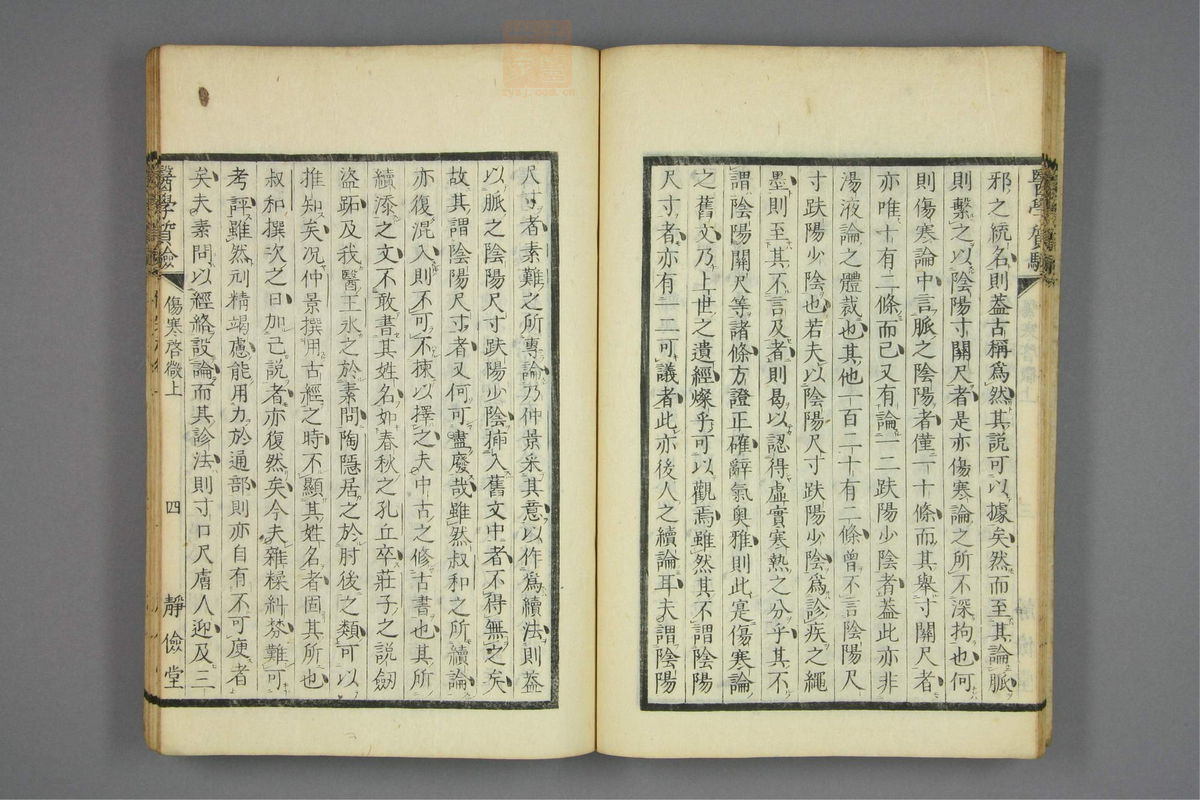 邪之統名則蓋古稱爲然其説可以據矣然而至其論脈
則繫之以陰陽寸關尺者是亦傷寒論之所不深拘也何
則傷寒論中言脈之陰陽者僅一十條而其舉寸關尺者
亦唯十有二條而已又有論一二趺陽少陰者蓋此亦非
湯液論之體裁也其他一百二十有二條曾不言陰陽尺
寸趺陽少陰也若夫以陰陽尺寸趺陽少陰爲診疾之繩
墨則至其不言及者則曷以認得虛實寒熱之分乎其不
謂陰陽關尺等諸條方證正確辭氣奥雅則此寔傷寒論
之舊文乃上世之遺經燦乎可以觀焉雖然其不謂陰陽
尺寸者亦有一二可議者此亦後人之續論耳夫謂陰陽
醫學質驗
尺寸者素難之所專論乃仲景采其意以作爲續法則蓋
以脈之陰陽尺寸趺陽少陰插入舊文中者不得無之矣
故其謂陰陽尺寸者又何可盡廢哉雖然叔和之所續論
亦復混入則不可不揀以擇之夫中古之修古書也其所
續添之文不敢書其姓名如春秋之孔丘卒莊子之説劔
盜跖及我醫王氷之於素問陶隱居之於肘後之類可以
推知矣况仲景撰用古經之時不顯其姓名者固其所也
叔和撰次之曰加己説者亦復然矣今夫雜糅糾棼難可
考評雖然刓精竭慮能用力於通部則亦自有不可庾者
矣夫素問以經絡設論而其診法則寸口尺膚人迎及三
醫學質驗
傷寒啓微上
四
靜儉堂